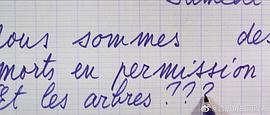 Samedi
ous sommes des
morts en permission
Et les arbres ???